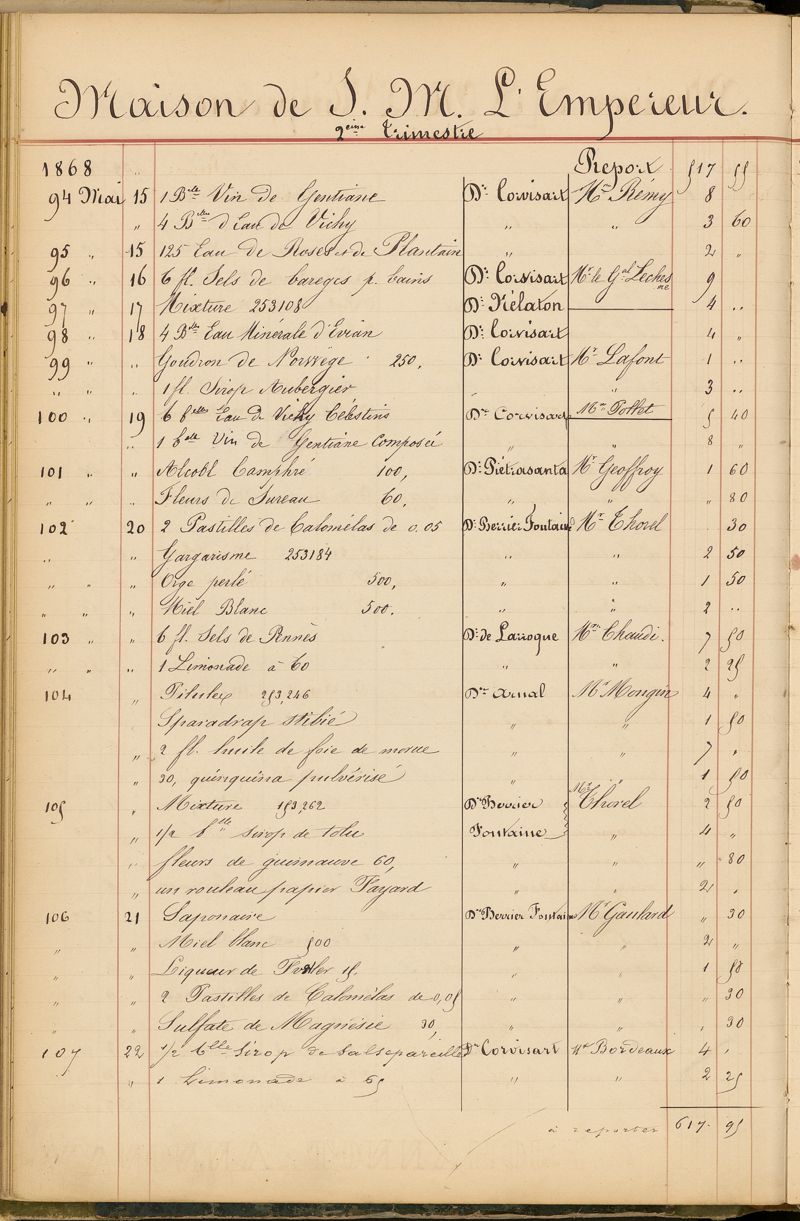 Maison de S. M. L'Empereur.
2eme Trimestre
1868 " Report 517 55
94 Mai 15 1 Blle Vin de Gentiane Dr Corvisart Mr Rémy 8
" 4 Blles d'Eau de Vichy " " 3 60
95 " 15 125 Eau de Roses et de Plantain " 2 "
96 " 16 6 fl. Sels de bareges p. bains Dr Corvisart Mr le Gal 9
97 " 17 Mixture 253108 Dr Nélaton 4 "
98 " 18 4 Blle Eau Minérale d'Evian Dr Corvisart 4 "
99 " " Goudron de Norvège 250, Dr Corvisart Mr Lafont 1 "
" " " 1 fl. Sirop Aubergier " " 3 "
100 " 19 6 blles Eau de Vichy Célestins Dr Corvisart Mr Pottet 5 40
" 1 blle Vin de Gentiane Composée " " 8 "
101 " " Alcool Camphré 100, Dr Piétrasanta Mr Geoffroy 1 60
" " " Fleurs de Sureau 60, " " " 80
102 20 2 Pastilles de Calomélas de 0.05 Dr Berrier Fontaine Mr Thorel 30
" " Gargarisme 253184 " " 2 50
" " " Orge perlé 500, " " 1 50
" " " Miel Blanc 500. " " 2 "
103 " " 6 fl. Sels de Pennès Dr de Larroque Mr Chaudi. 7 50
" " " 1 Limonade à 60 " " 2 25
104 " Pilules 253,246 Dr Arnal Mr Mongin 4 "
Sparadrap stibié " " 1 50
" 2 fl. huile de foie de morue " " 7 "
" 30, quinquina pulvérisé " " 1 50
105 " Mixture 153,262 Dr Berrier Mr Thorel 2 50
" 1/2 blle sirop de tolu Fontaine " 4 "
" fleurs de guimauve 60, " " " 80
" un rouleau papier Fayard " " 2 "
106 21 Saponaire Dr Berrier Fontaine Mr Gaulard " 30
" " Miel blanc 500 " " 2 "
" " Liqueur de 15. " " 1 50
" " 2 Pastilles de Calomélas de 0,05 " " " 30
" " Sulfate de Magnésie 30, " " " 30
107 22 1/2 blle Sirop de Salsepareille Dr Corvisart Mr Bordeaux 4 "
" 1 Limonade à 65 " " 2 25
à reporter 617. 95